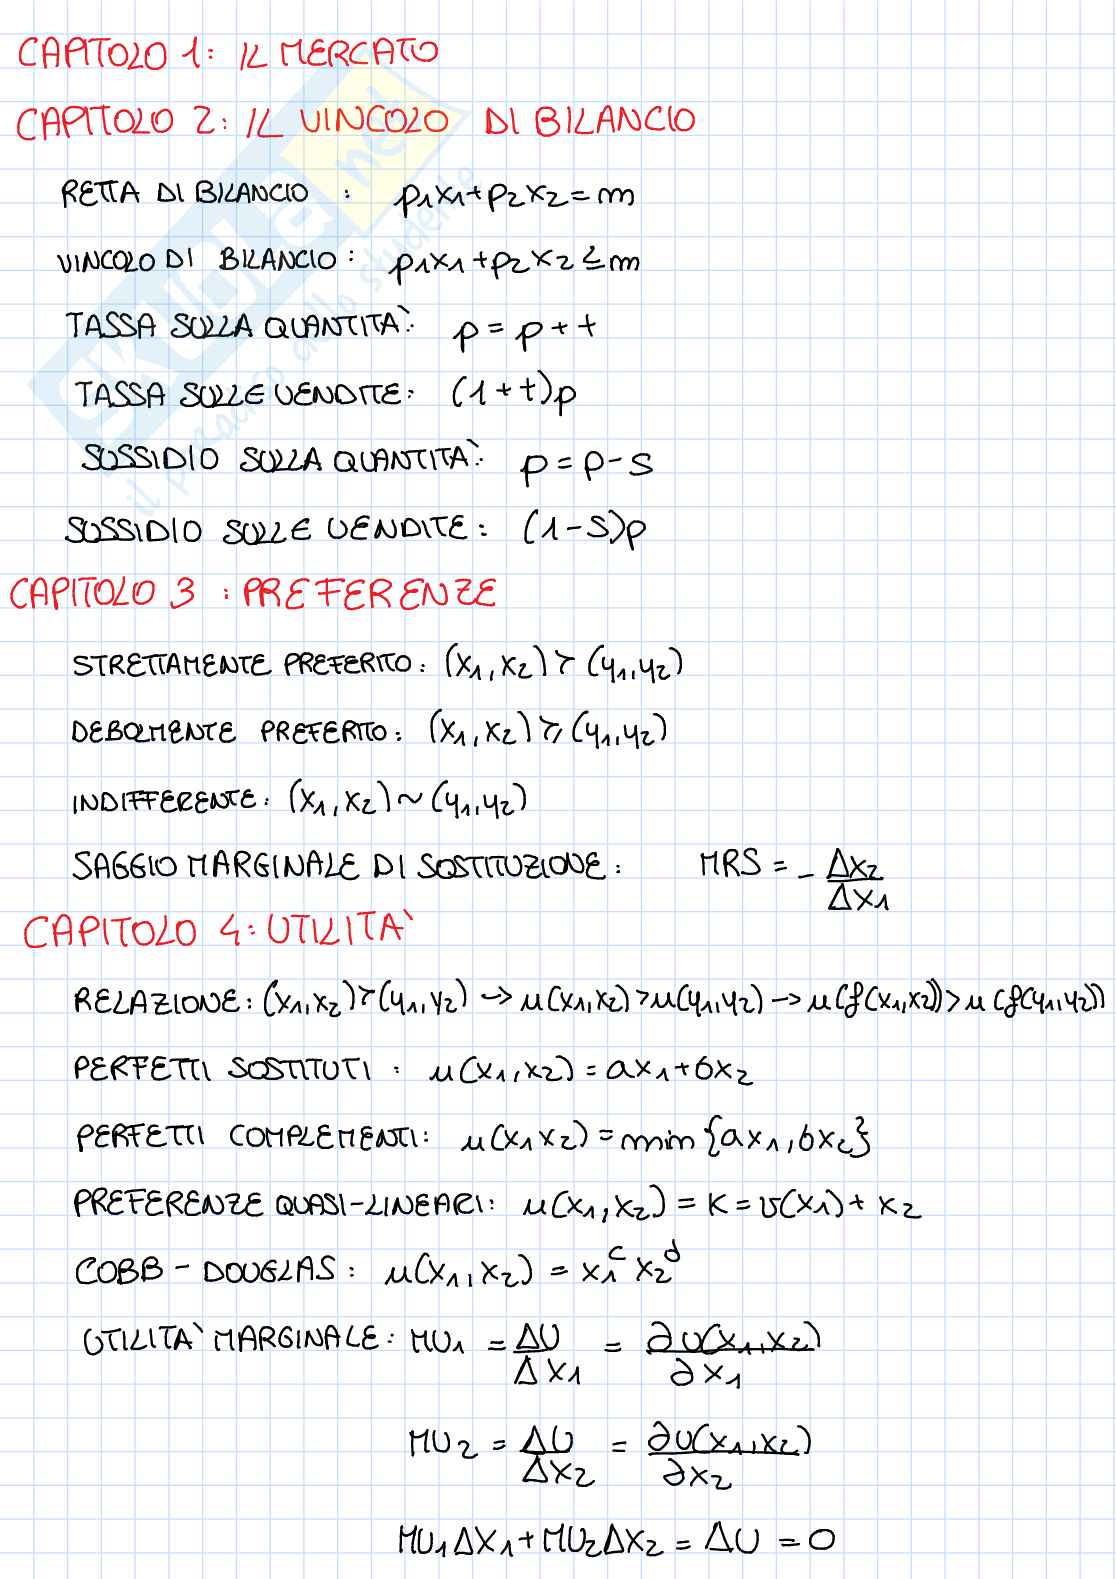 CAPITOLO 1: IL MERCATO
CAPITOLO 2: IL VINCOLO DI BILANCIO
RETTA DI BILANCIO : p₁x₁+p₂x₂=m
VINCOLO DI BILANCIO: p₁x₁+p₂x₂≤m
TASSA SULLA QUANTITÀ: p=p+t
TASSA SULLE VENDITE: (1+t)p
SUSSIDIO SULLA QUANTITÀ: p=p-s
SUSSIDIO SULLE VENDITE: (1-s)p
CAPITOLO 3 : PREFERENZE
STRETTAMENTE PREFERITO: (x₁,x₂)≻(y₁,y₂)
DEBOLMENTE PREFERITO: (x₁,x₂)≽(y₁,y₂)
INDIFFERENTE: (x₁,x₂)~(y₁,y₂)
SAGGIO MARGINALE DI SOSTITUZIONE: MRS = - Δx₂/Δx₁
CAPITOLO 4: UTILITÀ
RELAZIONE: (x₁,x₂)≻(y₁,y₂) -> u(x₁,x₂)>u(y₁,y₂) -> u(f(x₁,x₂))>u(f(y₁,y₂))
PERFETTI SOSTITUTI : u(x₁,x₂)=ax₁+bx₂
PERFETTI COMPLEMENTI: u(x₁x₂)=min{ax₁,bx₂}
PREFERENZE QUASI-LINEARI: u(x₁,x₂)=K=v(x₁)+x₂
COBB-DOUGLAS: u(x₁,x₂)=x₁ᶜx₂ᵈ
UTILITÀ MARGINALE: MU₁ = ΔU/Δx₁ = ∂U(x₁,x₂)/∂x₁
MU₂ = ΔU/Δx₂ = ∂U(x₁,x₂)/∂x₂
MU₁Δx₁+MU₂Δx₂=ΔU=0
SKUOLA.net
il paradiso dello studente